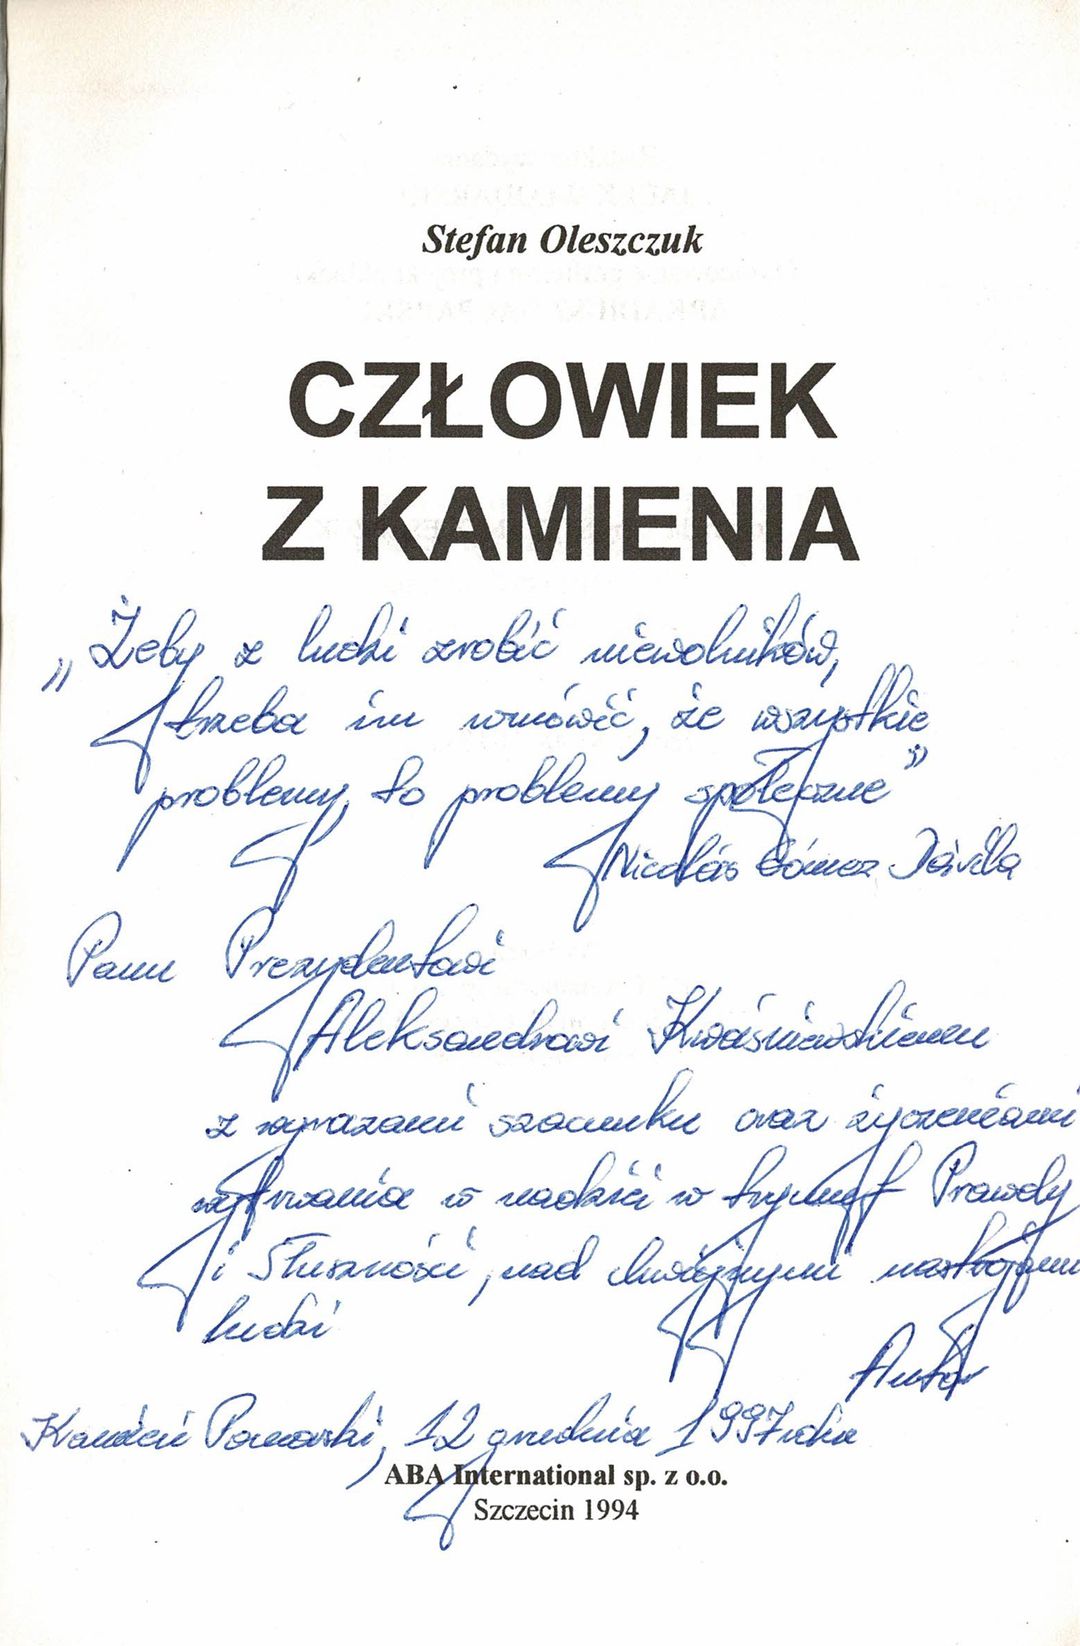 Stefan Oleszczuk
CZŁOWIEK
Z KAMIENIA
„Żeby z ludzi zrobić niewolników,
trzeba im wmówić, że wszystkie
problemy to problemy społeczne”
Nicolás Gómez Dávila
Panu Prezydentowi
Aleksandrowi Kwaśniewskiemu
z wyrazami szacunku oraz życzeniami
wytrwania w nadziei w tryumf Prawdy
i Słuszności, nad chwiejnymi nastrojami
ludzi
Autor
Kamień Pomorski, 12 grudnia 1997 roku
ABA International sp. z o.o.
Szczecin 1994